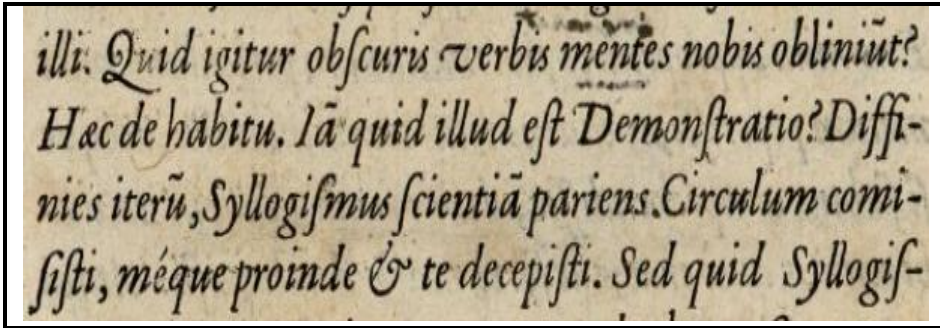 illi. Quid igitur obſcuris verbis mentes nobis obliniũt?
Hæc de habitu. Iã quid illud eſt Demonſtratio? Diffi-
nies iterũ, Syllogiſmus ſcientiã pariens. Circulum comi-
ſiſti, méque proinde & te decepiſti. Sed quid Syllogiſ-